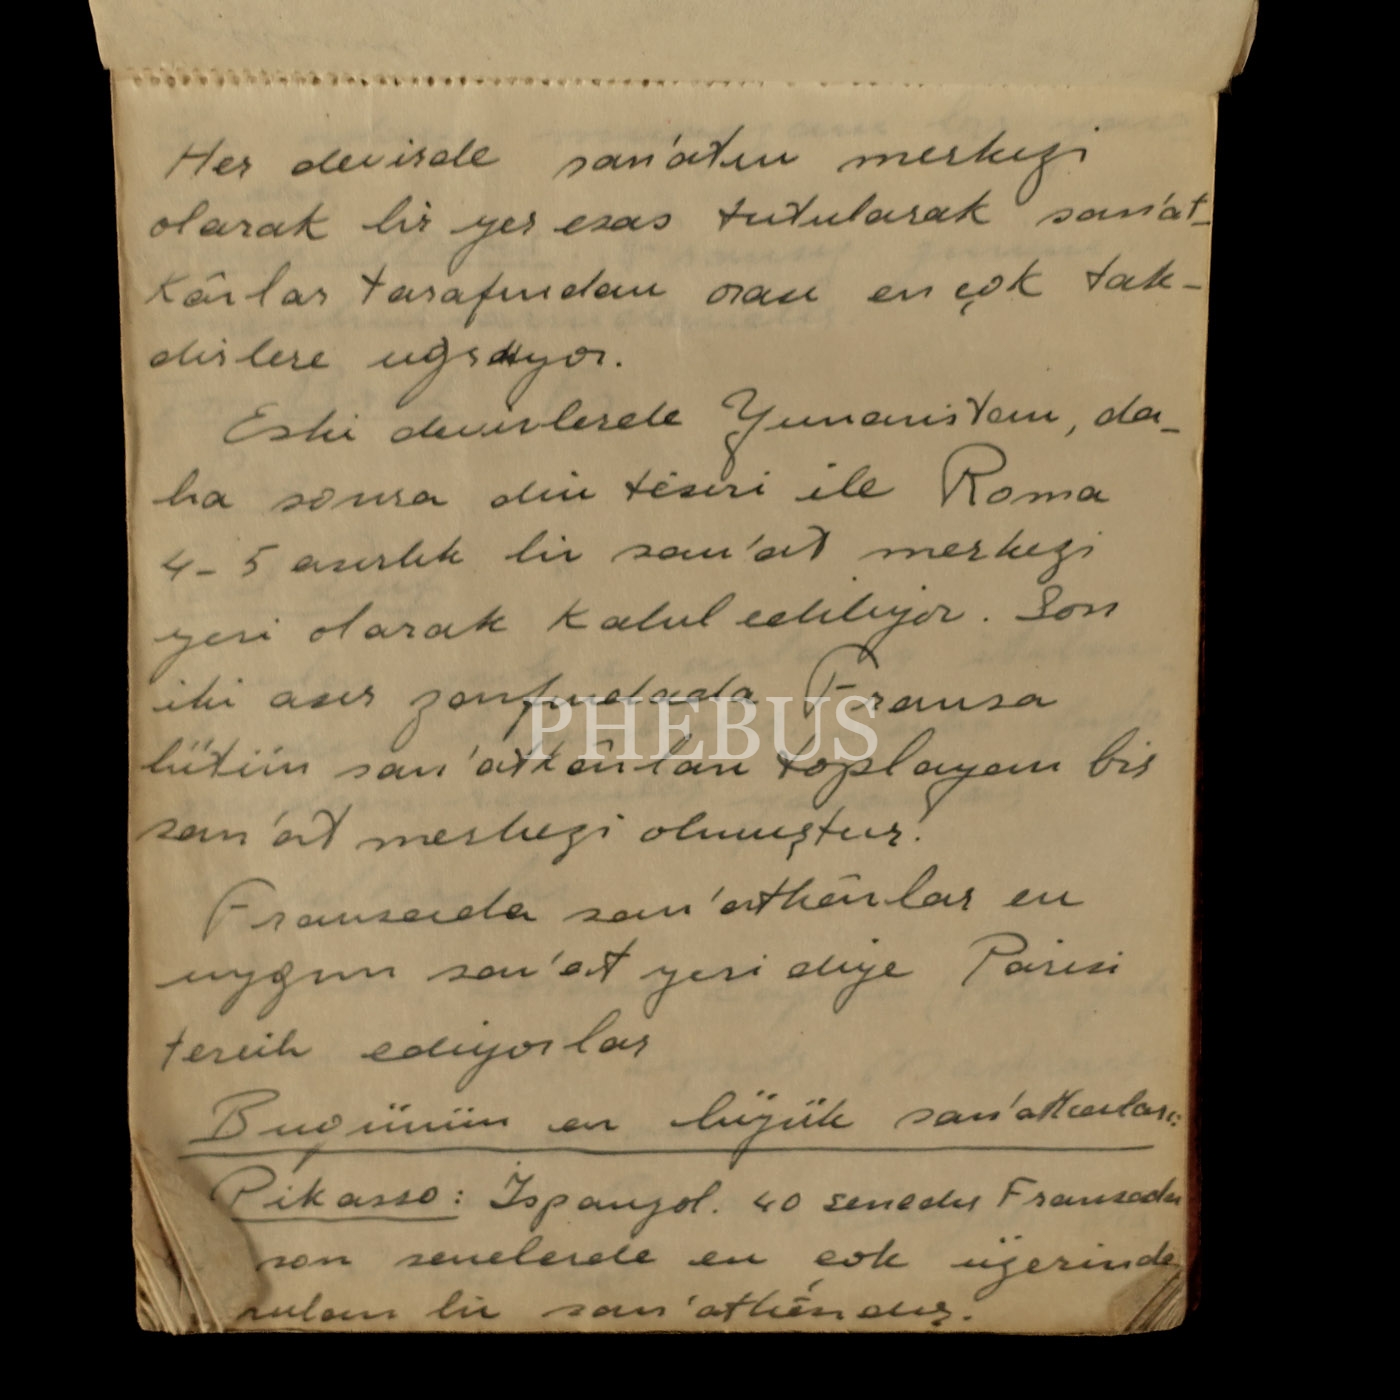 Her devirde san'atın merkezi
olarak bir yer esas tutularak san'at-
kârlar tarafından orası en çok tak-
dirlere uğruyor.
Eski devirlerde Yunanistan, da-
ha sonra din tesiri ile Roma
4-5 asırlık bir san'at merkezi
yeri olarak kabul ediliyor. Son
iki asır zarfındada Fransa
bütün san'atkârları toplayan bir
san'at merkezi olmuştur.
Fransada san'atkârlar en
uygun san'at yeri diye Parisi
tercih ediyorlar
Bugünün en büyük san'atkarları:
Pikasso: İspanyol. 40 senedir Fransada
son senelerde en çok üzerinde
rulan bir san'atkârdır.
PHEBUS